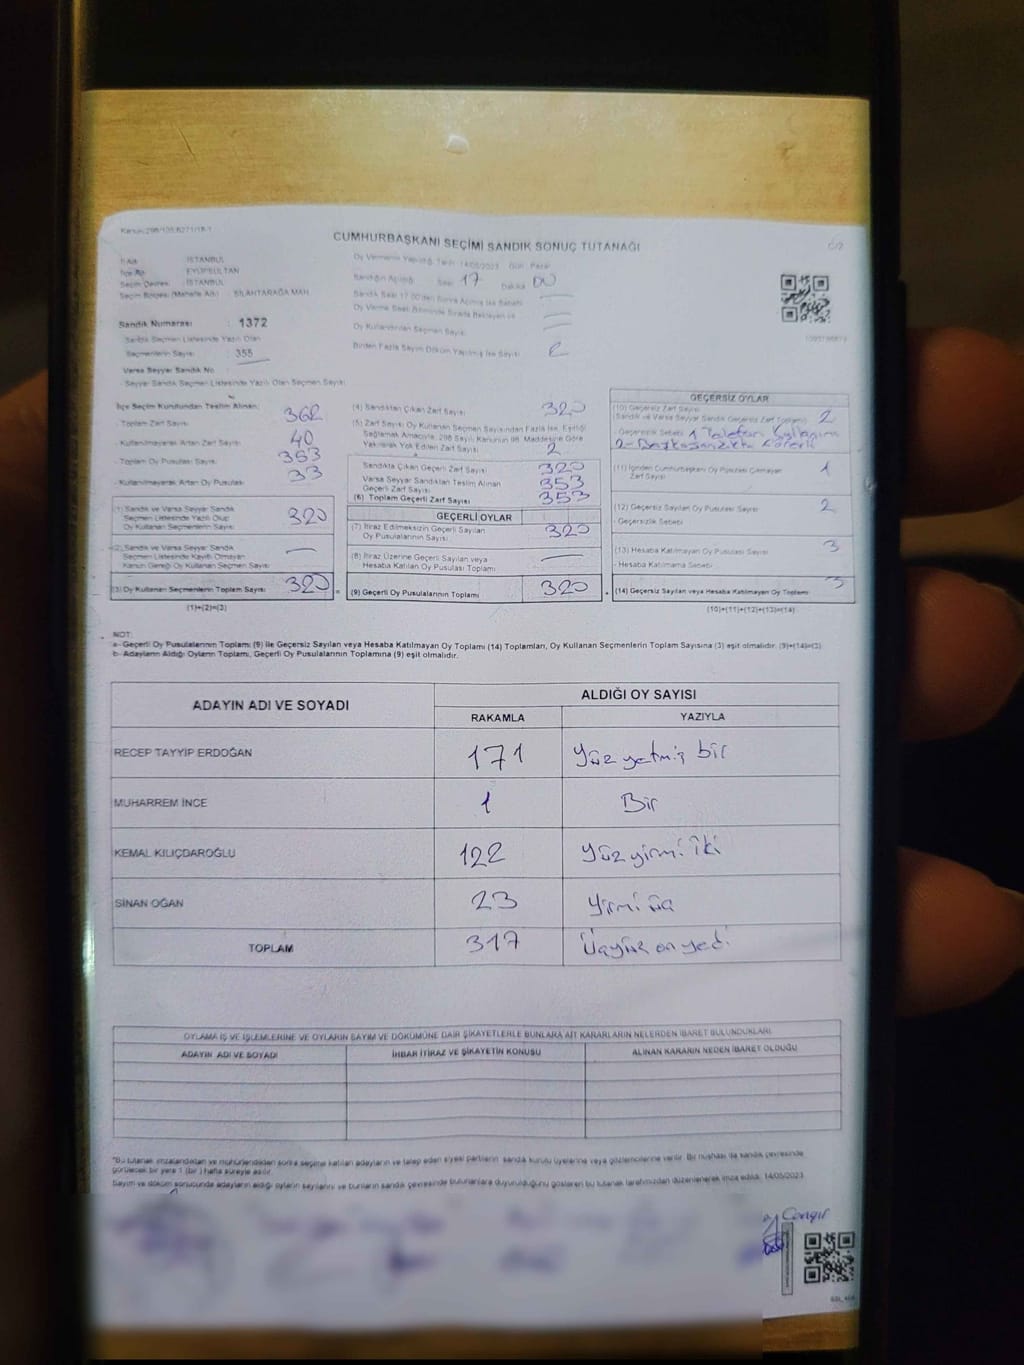 Kanun:298/105;6271/18-1
CUMHURBAŞKANI SEÇİMİ SANDIK SONUÇ TUTANAĞI
C/2
İl Adı : İSTANBUL
İlçe Adı : EYÜPSULTAN
Seçim Çevresi : İSTANBUL
Seçim Bölgesi (Mahalle Adı) : SİLAHTARAĞA MAH.
Oy Vermenin Yapıldığı Tarih: 14/05/2023 Gün: Pazar
Sandığın Açıldığı Saat 17 Dakika 00
Sandık Saat 17:00'den Sonra Açılmış İse Sebebi
Oy Verme Saati Bitiminde Sırada Bekleyen ve
Oy Kullandırılan Seçmen Sayısı
Birden Fazla Sayım Döküm Yapılmış İse Sayısı
Sandık Numarası : 1372
Sandık Seçmen Listesinde Yazılı Olan
Seçmenlerin Sayısı : 355
Varsa Seyyar Sandık No
Seyyar Sandık Seçmen Listesinde Yazılı Olan Seçmen Sayısı
İlçe Seçim Kurulundan Teslim Alınan:
- Toplam Zarf Sayısı 362
- Kullanılmayarak Artan Zarf Sayısı 40
- Toplam Oy Pusulası Sayısı 353
- Kullanılmayarak Artan Oy Pusulası 33
(1) Sandık ve Varsa Seyyar Sandık
Seçmen Listesinde Yazılı Olup
Oy Kullanan Seçmenlerin Sayısı 320
(2) Sandık ve Varsa Seyyar Sandık
Seçmen Listesinde Kayıtlı Olmayan
Kanun Gereği Oy Kullanan Seçmen Sayısı —
(3) Oy Kullanan Seçmenlerin Toplam Sayısı 320
(1)+(2)=(3)
(4) Sandıktan Çıkan Zarf Sayısı 320
(5) Zarf Sayısı Oy Kullanan Seçmen Sayısından Fazla İse, Eşitliği
Sağlamak Amacıyla, 298 Sayılı Kanunun 98. Maddesine Göre
Yakılarak Yok Edilen Zarf Sayısı 2
Sandıkta Çıkan Geçerli Zarf Sayısı 320
Varsa Seyyar Sandıktan Teslim Alınan
Geçerli Zarf Sayısı 353
(6) Toplam Geçerli Zarf Sayısı 353
GEÇERLİ OYLAR
(7) İtiraz Edilmeksizin Geçerli Sayılan
Oy Pusulalarının Sayısı 320
(8) İtiraz Üzerine Geçerli Sayılan veya
Hesaba Katılan Oy Pusulası Toplamı —
(9) Geçerli Oy Pusulalarının Toplamı 320
GEÇERSİZ OYLAR
(10) Geçersiz Zarf Sayısı
(Sandık ve Varsa Seyyar Sandık Geçersiz Zarf Toplamı) 2
- Geçersizlik Sebebi 1
2-
(11) İçinden Cumhurbaşkanı Oy Pusulası Çıkmayan
Zarf Sayısı 1
(12) Geçersiz Sayılan Oy Pusulası Sayısı 2
- Geçersizlik Sebebi
(13) Hesaba Katılmayan Oy Pusulası Sayısı 3
- Hesaba Katılmama Sebebi
(14) Geçersiz Sayılan veya Hesaba Katılmayan Oy Toplamı 3
(10)+(11)+(12)+(13)=(14)
NOT:
a- Geçerli Oy Pusulalarının Toplamı (9) ile Geçersiz Sayılan veya Hesaba Katılmayan Oy Toplamı (14) Toplamları, Oy Kullanan Seçmenlerin Toplam Sayısına (3) eşit olmalıdır. (9)+(14)=(3)
b- Adayların Aldığı Oyların Toplamı, Geçerli Oy Pusulalarının Toplamına (9) eşit olmalıdır.
ADAYIN ADI VE SOYADI
ALDIĞI OY SAYISI
RAKAMLA YAZIYLA
RECEP TAYYİP ERDOĞAN 171 Yüz yetmiş bir
MUHARREM İNCE 1 Bir
KEMAL KILIÇDAROĞLU 122 Yüz yirmi iki
SİNAN OĞAN 23 Yirmi üç
TOPLAM 317 Üçyüz on yedi
OYLAMA İŞ VE İŞLEMLERİNE VE OYLARIN SAYIM VE DÖKÜMÜNE DAİR ŞİKAYETLERLE BUNLARA AİT KARARLARIN NELERDEN İBARET BULUNDUKLARI
ADAYIN ADI VE SOYADI İHBAR İTİRAZ VE ŞİKAYETİN KONUSU ALINAN KARARIN NEDEN İBARET OLDUĞU
*Bu tutanak imzalandıktan ve mühürlendikten sonra seçime katılan adayların ve talep eden siyasi partilerin sandık kurulu üyelerine veya gözlemcilerine verilir. Bir nüshası da sandık çevresinde
görülecek bir yere 1 (bir) hafta süreyle asılır.
Sayım ve döküm sonucunda adayların aldığı oyların sayılarını ve bunların sandık çevresinde bulunanlara duyurulduğunu gösteren bu tutanak tarafımızdan düzenlenerek imza edildi. 14/05/2023